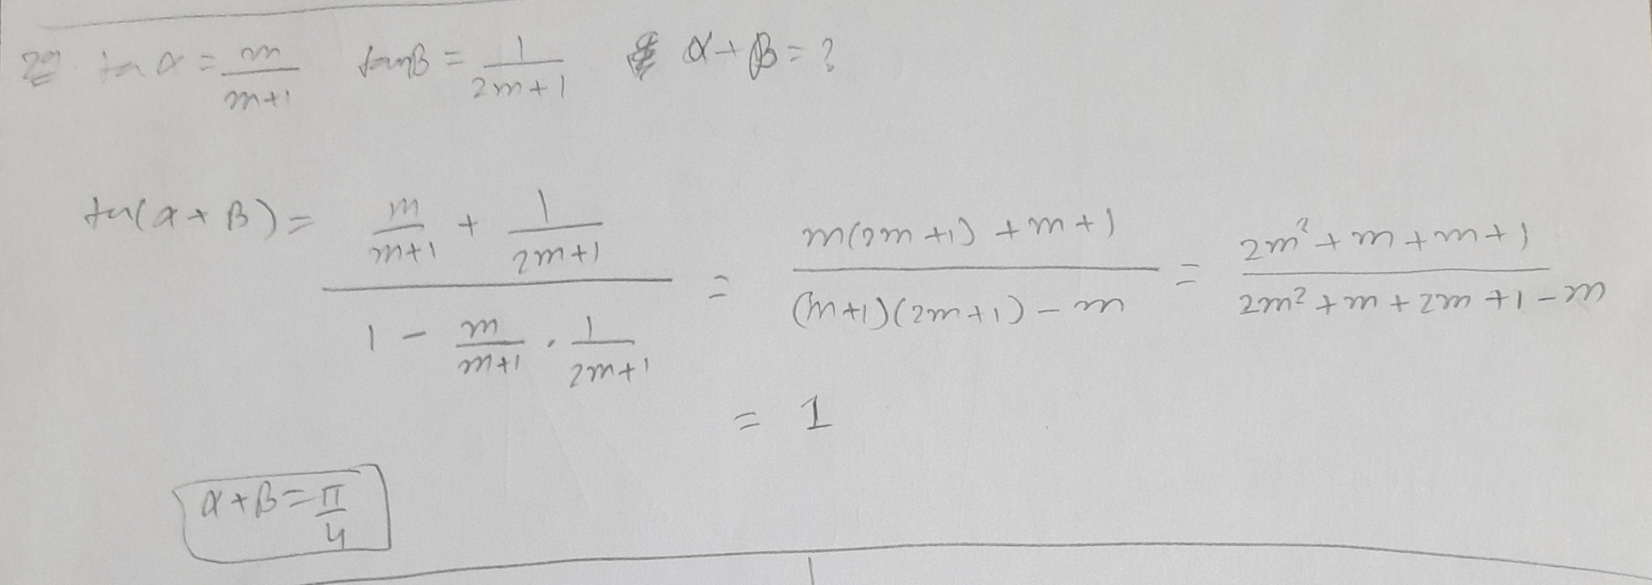 29. tan α = m/(m+1) tanβ = 1/(2m+1) α+β=?
tan(α+β) = (m/(m+1) + 1/(2m+1))/(1 - m/(m+1) . 1/(2m+1)) = (m(2m+1) + m+1)/((m+1)(2m+1) - m) = (2m²+m+m+1)/(2m²+m+2m+1-m)
= 1
α+β=π/4